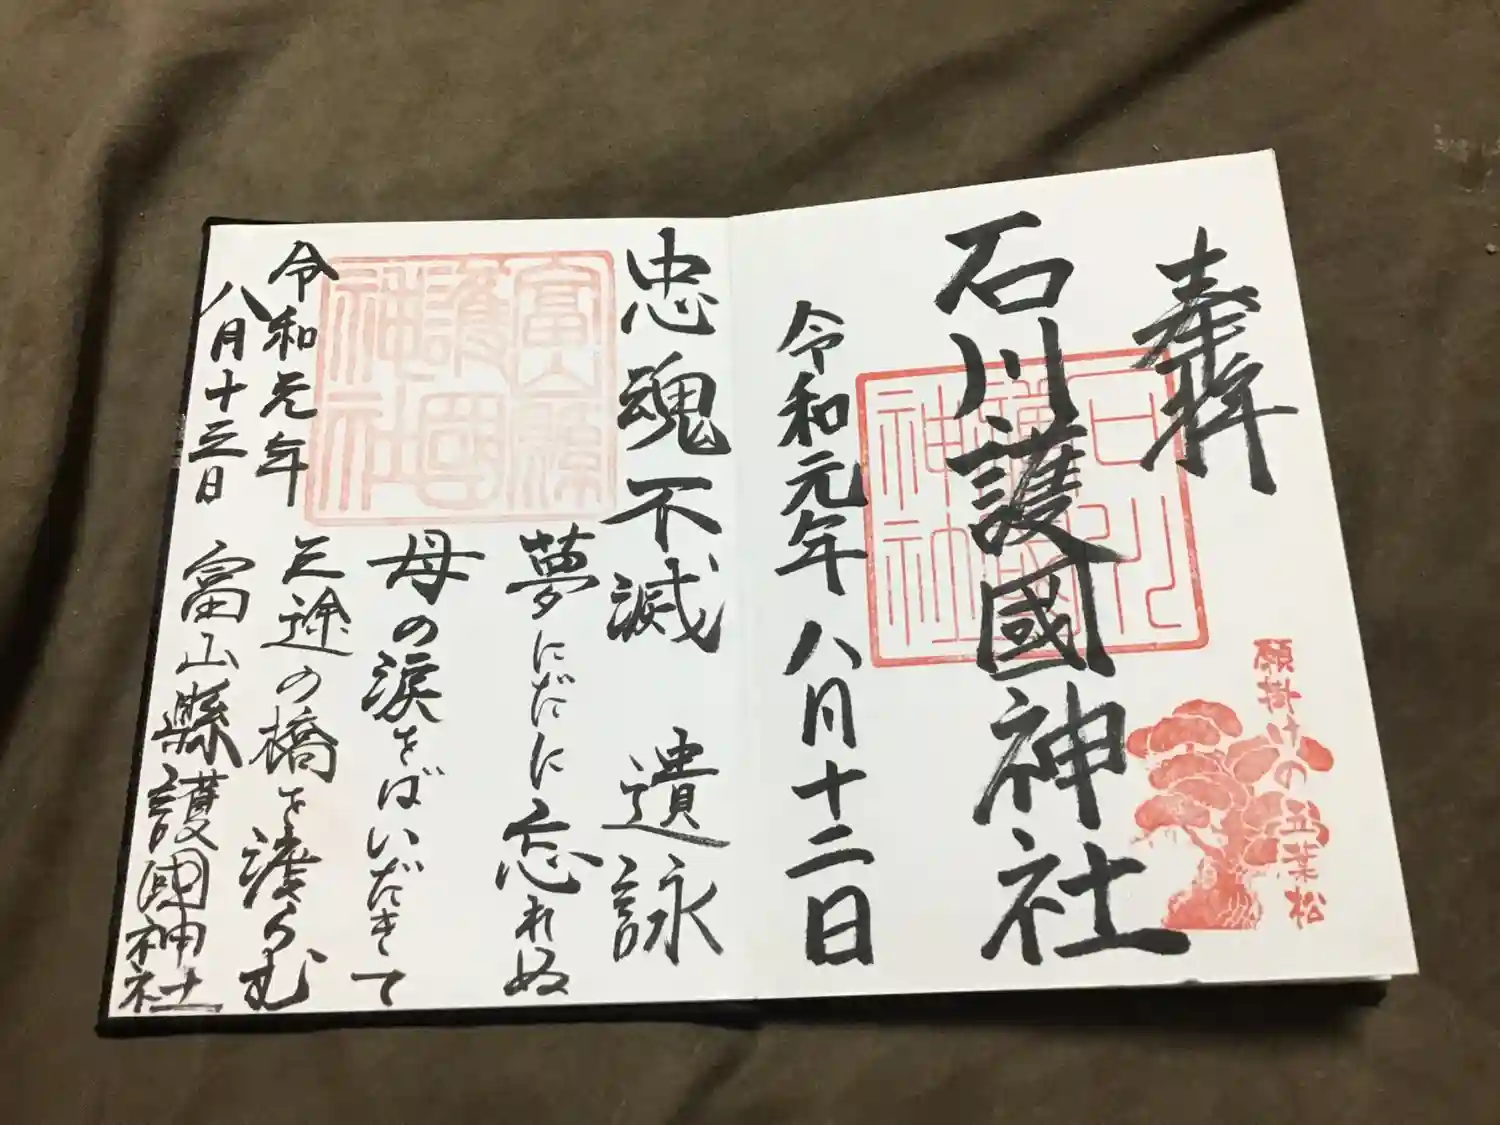 奉拝
石川護國神社
石川護國神社
願掛けの五葉松
令和元年八月十二日
忠魂不滅 遺詠
夢にだに忘れぬ
母の涙をばいだきて
三途の橋を渡らむ
富山縣護國神社
令和元年
八月十三日
富山縣護國神社